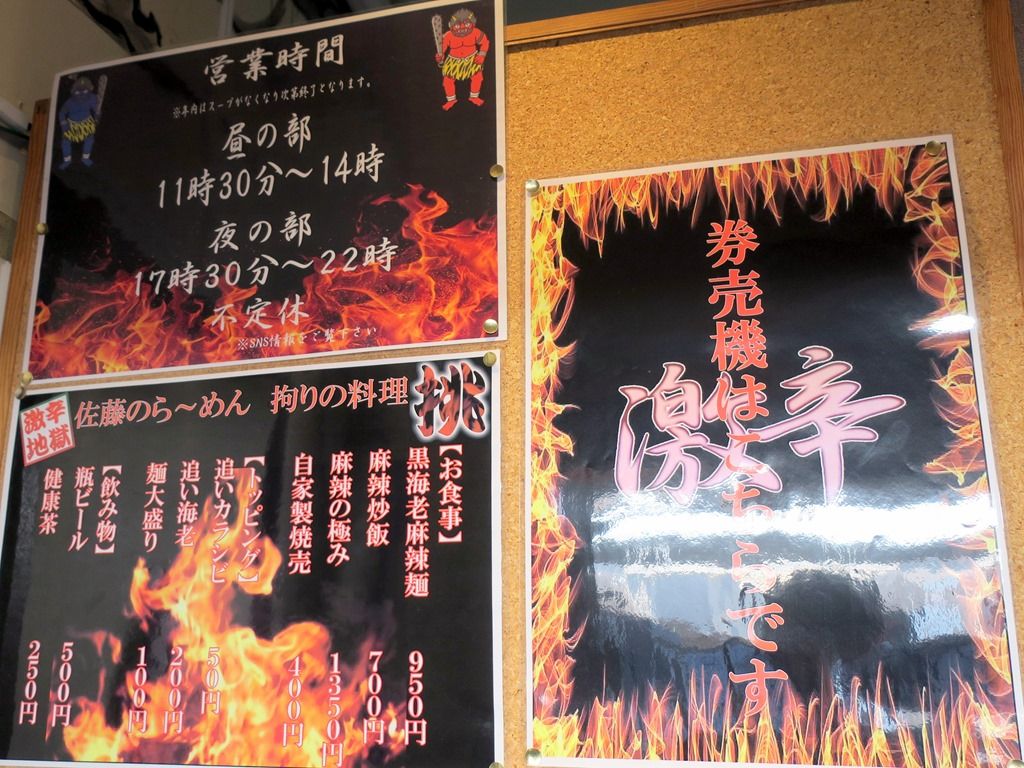 営業時間
※年内はスープがなくなり次第終了となります。
昼の部
11時30分～14時
夜の部
17時30分～22時
不定休
※SNS情報をご覧下さい
激辛地獄
佐藤のら～めん 拘りの料理
挑
【お食事】
黒海老麻辣麺 950円
麻辣炒飯 700円
麻辣の極み 1350円
自家製焼売 400円
【トッピング】
追いカラシビ 50円
追い海老 200円
麺大盛り 100円
【飲み物】
瓶ビール 500円
健康茶 250円
激辛
券売機はこちらです